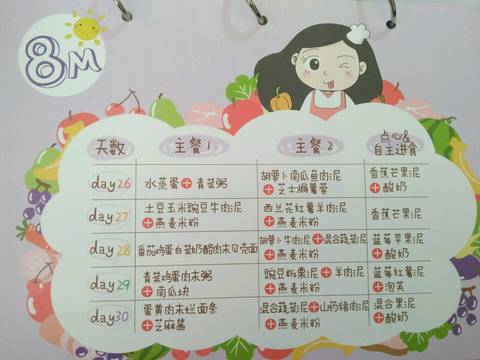 8M
天数 主餐1 主餐2 点心&
自主进食
day26 水蒸蛋+青菜粥 胡萝卜南瓜鱼肉泥
+芝士焗薯蓉 香蕉芒果泥
+酸奶
day27 土豆玉米豌豆牛肉泥
+燕麦米粉 西兰花红薯羊肉泥
+燕麦米粉 香蕉芒果泥
day28 番茄鸡蛋白菜奶酪肉末贝壳面 胡萝卜牛肉泥+混合蔬菜泥
+燕麦米粉 蓝莓苹果泥
+酸奶
day29 青菜鸡蛋肉末粥
+南瓜块 豌豆板栗泥+羊肉泥
+燕麦米粉 蓝莓红薯泥
+泡芙
day30 蛋黄肉末烂面条
+芝麻酱 混合蔬菜泥+山药猪肉泥
+燕麦米粉 混合果泥
+酸奶